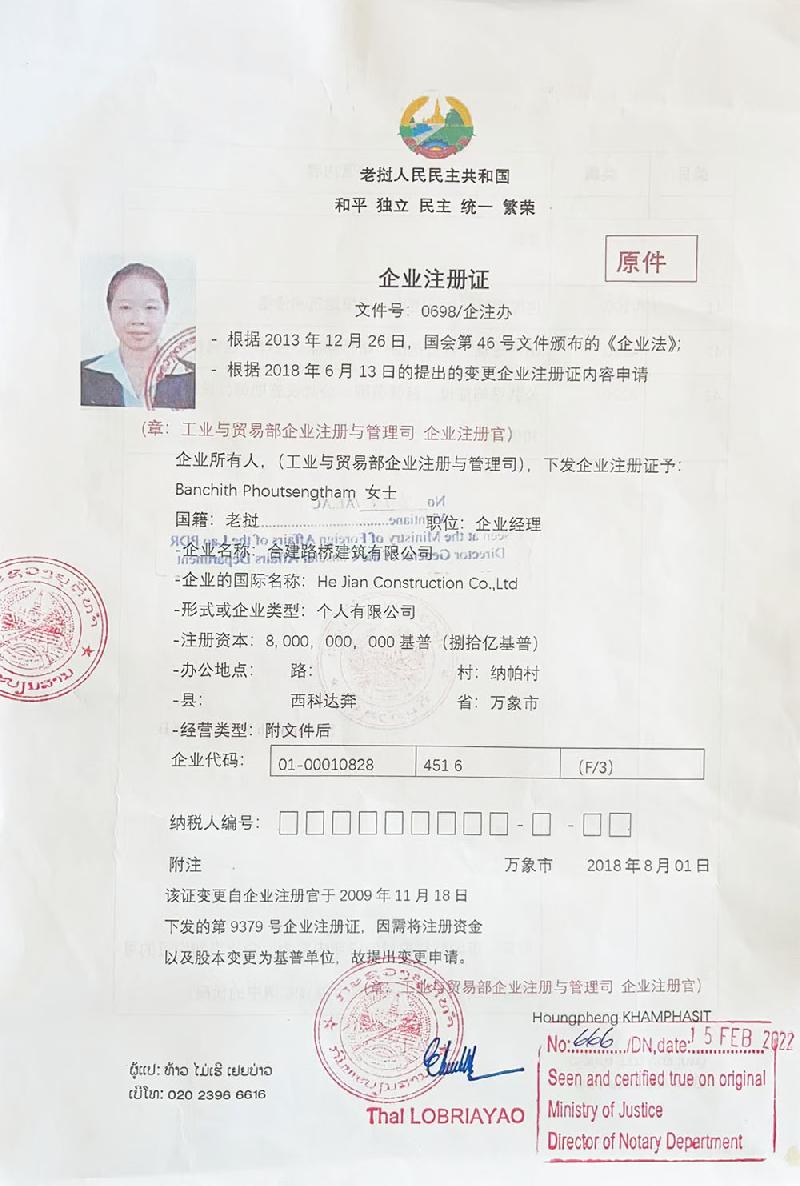 老挝人民民主共和国
和平 独立 民主 统一 繁荣
原件
企业注册证
文件号：0698/企注办
- 根据 2013 年 12 月 26 日，国会第 46 号文件颁布的《企业法》；
- 根据 2018 年 6 月 13 日的提出的变更企业注册证内容申请
（章：工业与贸易部企业注册与管理司 企业注册官）
企业所有人，（工业与贸易部企业注册与管理司），下发企业注册证予：
Banchith Phoutsengtham 女士
国籍：老挝........................ 职位：企业经理
-企业名称：合建路桥建筑有限公司
-企业的国际名称：He Jian Construction Co.,Ltd
-形式或企业类型：个人有限公司
-注册资本：8，000，000，000 基普（捌拾亿基普）
-办公地点： 路： 村：纳帕村
-县： 西科达奔 省：万象市
-经营类型：附文件后
企业代码： 01-00010828 451 6 （F/3）
纳税人编号：□□□□□□□□□-□-□□
附注 万象市 2018 年 8 月 01 日
该证变更自企业注册官于 2009 年 11 月 18 日
下发的第 9379 号企业注册证，因需将注册资金
以及股本变更为基普单位，故提出变更申请。
（章：工业与贸易部企业注册与管理司 企业注册官）
Houngpheng KHAMPHASIT
No:666/DN,date:15 FEB 2022
Seen and certified true on original
Ministry of Justice
Director of Notary Department
ຜູ້ແປ: ທ້າວ ໄມ່ເຮີ ເຍຍປ່າວ
ເບີໂທ: 020 2396 6616
Thai LOBRIAYAO